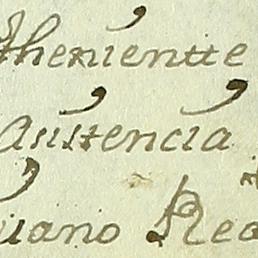 theniente
Asistencia
uano Rea